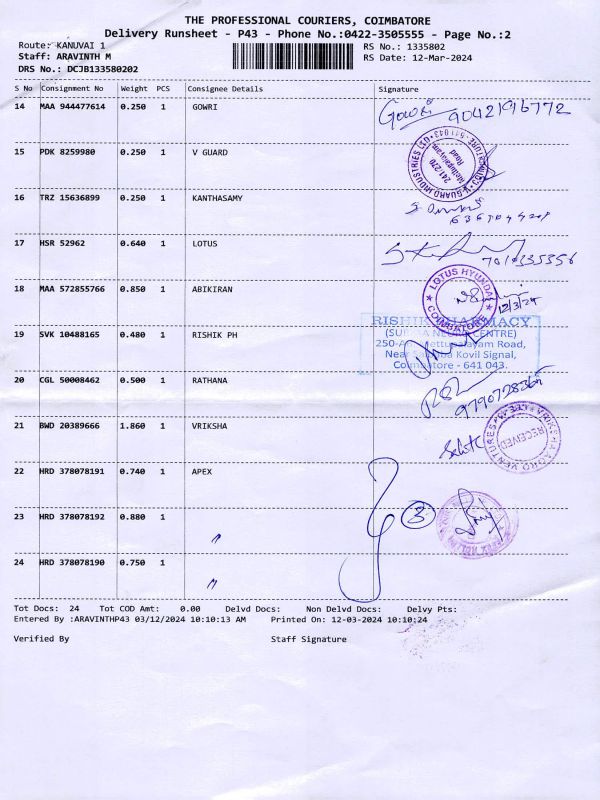 THE PROFESSIONAL COURIERS, COIMBATORE
Delivery Runsheet - P43 - Phone No.:0422-3505555 - Page No.:2
Route: KANUVAI 1
RS No.: 1335802
Staff: ARAVINTH M
RS Date: 12-Mar-2024
DRS No.: DCJB133580202
S No Consignment No Weight PCS Consignee Details Signature
14 MAA 944477614 0.250 1 GOWRI
15 PDK 8259980 0.250 1 V GUARD
V-GUARD INDUSTRIES LTD
241 270
Mettupalayam
Road
16 TRZ 15636899 0.250 1 KANTHASAMY
17 HSR 52962 0.640 1 LOTUS
18 MAA 572855766 0.850 1 ABIKIRAN
LOTUS HYUNDAI
COIMBATORE
12/3/24
19 SVK 10488165 0.480 1 RISHIK PH
RISHIK PHARMACY
Mettupalayam Road,
Kovil Signal,
Coimbatore - 641 043.
20 CGL 50008462 0.500 1 RATHANA
21 BWD 20389666 1.860 1 VRIKSHA
RECEIVED
22 HRD 378078191 0.740 1 APEX
23 HRD 378078192 0.880 1
3
24 HRD 378078190 0.750 1
Tot Docs: 24 Tot COD Amt: 0.00 Delvd Docs: Non Delvd Docs: Delvy Pts:
Entered By :ARAVINTHP43 03/12/2024 10:10:13 AM Printed On: 12-03-2024 10:10:24
Verified By Staff Signature